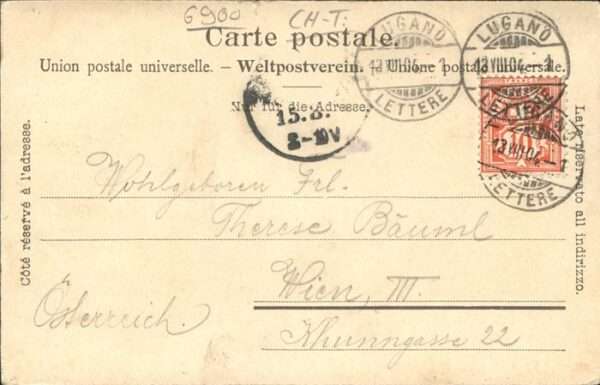 6900 CH-T:
Carte postale.
Union postale universelle. – Weltpostverein. – Unione postale universale.
Nur für die Adresse.
LUGANO
13.VIII.04. 1
LETTERE
LUGANO
13.VIII.04. 1
LETTERE
13.VIII.04. 1
LETTERE
10
15.8.
8-10V
Côté réservé à l'adresse.
Lato riservato all indirizzo.
Wohlgeboren Frl.
Therese Bäuml
Wien, III.
Österreich.
Khunngasse 22